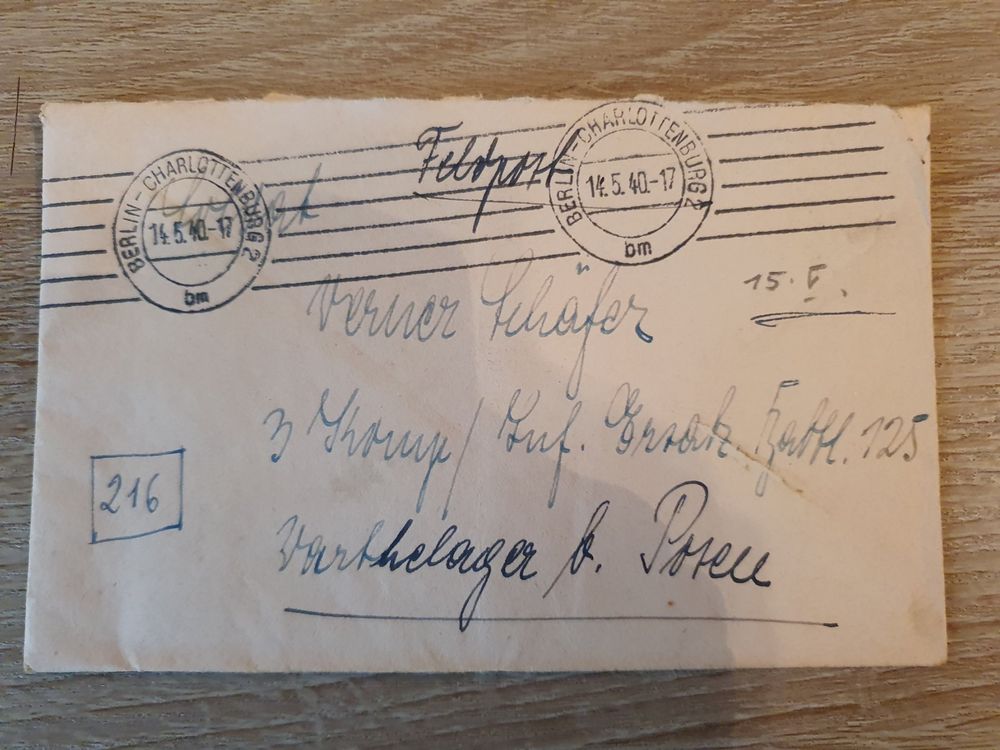 Feldpost
BERLIN-CHARLOTTENBURG 2
14.5.40.-17
bm
BERLIN-CHARLOTTENBURG 2
14.5.40.-17
bm
15. V.
Werner Schäfer
3 Komp / Inf. Ersatz. Batl. 125
216
Warthelager b. Posen